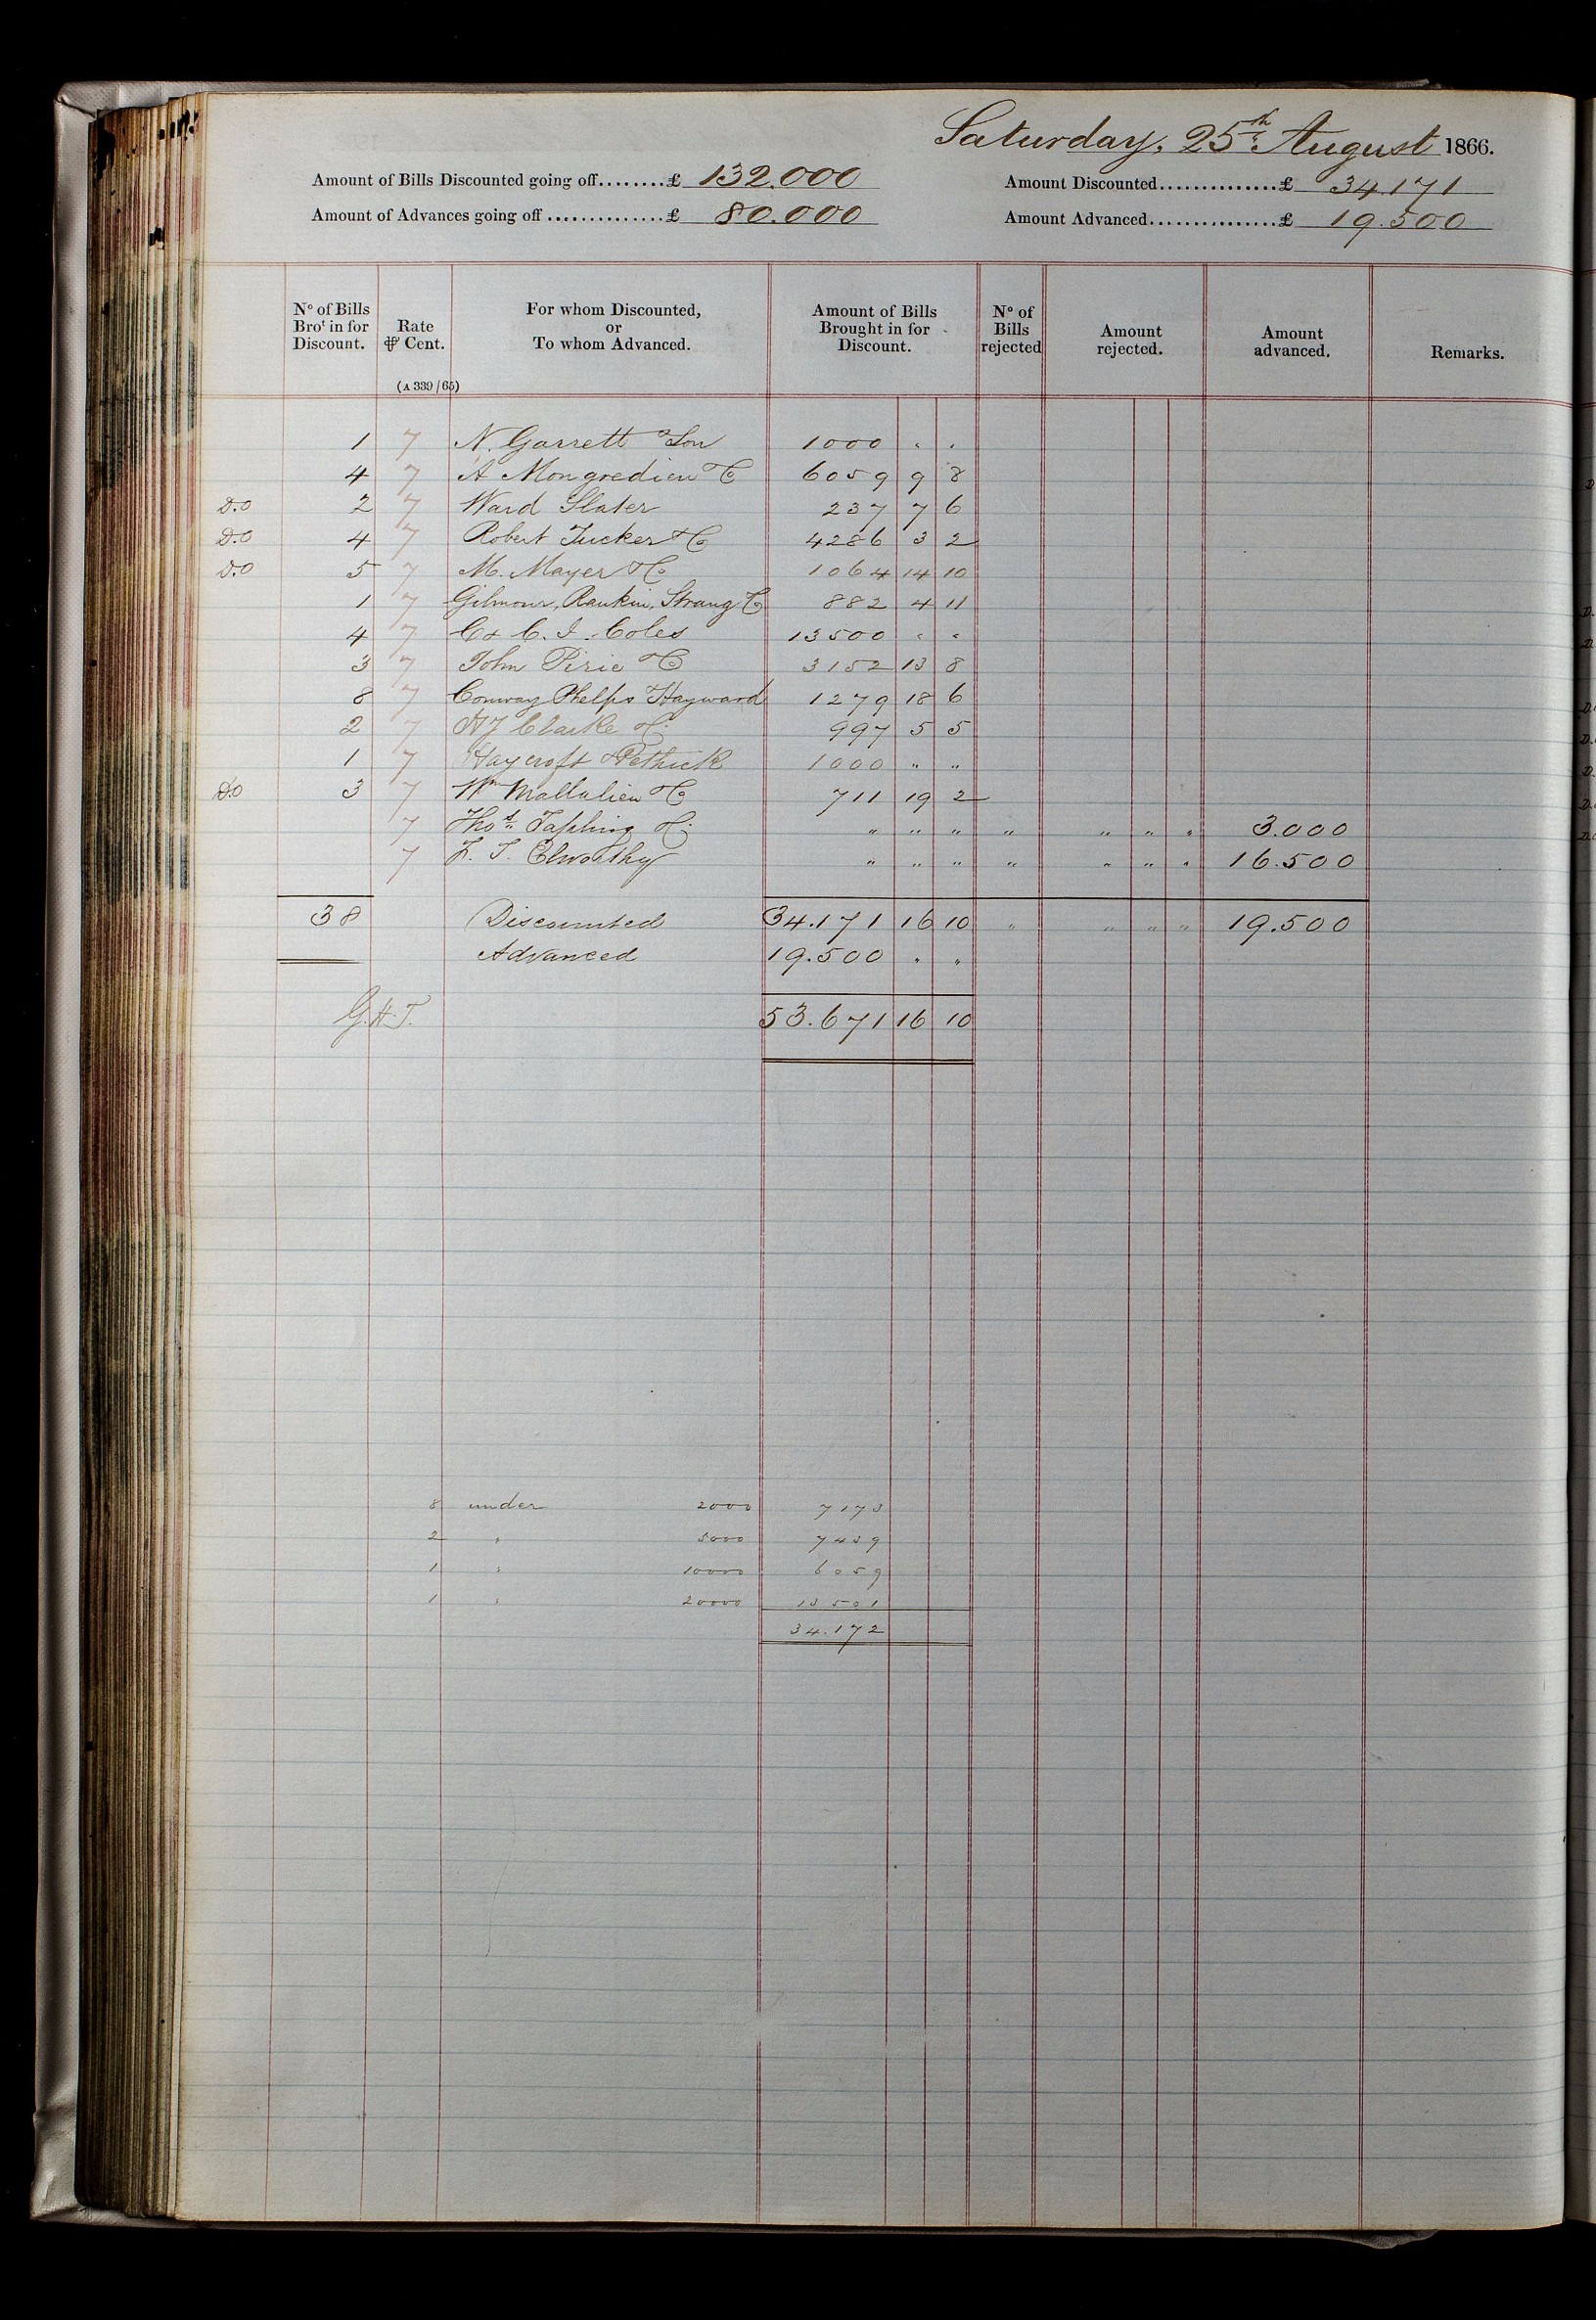 Saturday, 25th August 1866.
Amount of Bills Discounted going off........£ 132.000 Amount Discounted...............£ 34.171
Amount of Advances going off ..............£ 80.000 Amount Advanced................£ 19.500
No of Bills Brot in for Discount. Rate ⅌ Cent. For whom Discounted, or To whom Advanced. Amount of Bills Brought in for Discount. No of Bills rejected Amount rejected. Amount advanced. Remarks.
(A 339/65)
1 7 N. Garrett & Son 1000 " "
4 7 A Mongredien & C 6059 9 8
D.O 2 7 Ward Slater 237 7 6
D.O 4 7 Robert Tucker & C 4286 3 2
D.O 5 7 M. Mayer & C 1064 14 10
1 7 Gilmour, Rankin, Strang & C 882 4 11
4 7 C & C. I. Coles 13500 " "
3 7 John Pirie & C 3152 13 8
8 7 Conway Phelps Hayward 1279 18 6
2 7 Clarke & C 997 5 5
1 7 Haycroft & Pethick 1000 " "
D.O 3 7 Wm Mallalieu & C 711 19 2
7 Thos. Tapling & C. " " " " " " " 3.000
7 Elworthy " " " " " " " 16.500
38 Discounted 34.171 16 10 " " " " 19.500
Advanced 19.500 " "
G.H.T. 53.671 16 10
8 under 2000 7173
2 " 5000 7439
1 " 10000 6059
1 " 20000 13501
34.172